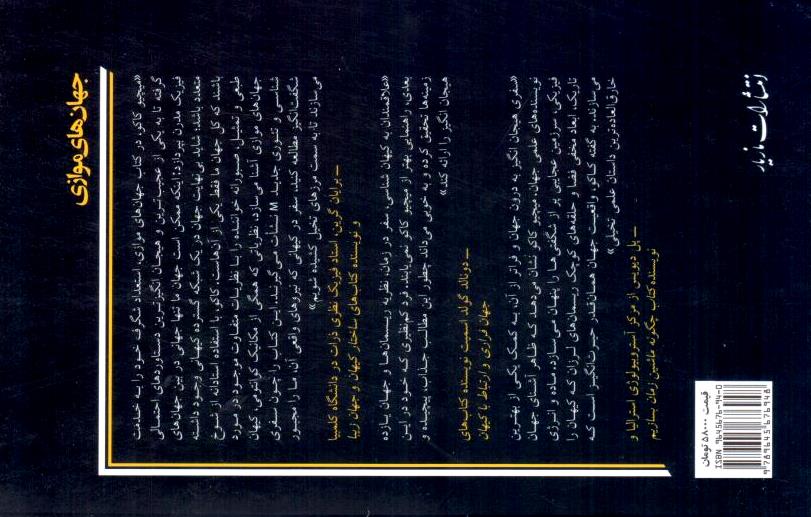 جهان‌های موازی
«میچیو کاکو، در کتاب جهان‌های موازی، استعداد شگرف خود را به خدمت
گرفته تا به یکی از عجیب‌ترین و هیجان انگیزترین دستاوردهای احتمالی
فیزیک مدرن بپردازد: اینکه ممکن است جهان ما تنها جهانی در بین جهان‌های
متعدد باشد؛ شاید بی‌نهایت جهان در یک شبکه گسترده کیهانی وجود داشته
باشند که کل جهان ما فقط یکی از آن‌هاست. کاکو، با استفاده استادانه از تنوع
طبعی و تمثیل، صبورانه خواننده را با نظریات متفاوت موجود در مورد
جهان‌های موازی آشنا می‌سازد، نظریاتی که همگی از مکانیک کوانتومی، کیهان
شناسی و تئوری جدید M نشأت می‌گیرند. این کتاب را چون سفری
شگفت‌انگیز مطالعه کنید، سفر در کیهانی که نیروهای واقعی آن، ما را مجبور
می‌سازند تا به سمت مرزهای تخیل کشیده شویم»
– برایان گرین، استاد فیزیک نظری ذرات در دانشگاه کلمبیا
و نویسنده کتاب‌های ساختار کیهان و جهان زیبا
«علاقمندان به کیهان شناسی، سفر در زمان، نظریه ریسمان‌ها و جهان یازده
بعدی، راهنمایی بهتر از میچیو کاکو نمی‌یابند، فرد کم‌نظیری که خود در این
زمینه‌ها تحقیق کرده و به خوبی می‌داند چطور این مطالب جذاب، پیچیده و
هیجان انگیز را ارائه کند»
– دونالد گولد اسمیت نویسنده کتاب‌های
جهان فراری و ارتباط با کیهان
«سفری هیجان انگیز به درون جهان و فراتر از آن، به کمک یکی از بهترین
نویسنده‌های علمی جهان، میچیو کاکو نشان می‌دهد که ظاهر آشنای جهان
فیزیکی، سرزمین عجایبی پر از شگفتی‌ها را پنهان می‌سازد: ماده و انرژی
تاریک، ابعاد مخفی فضا و حلقه‌های کوچک ریسمان‌های لرزان که کیهان را
می‌سازند. به گفته کاکو، واقعیت جهان همان‌قدر حیرت‌انگیز است که
خارق‌العاده‌ترین داستان علمی تخیلی»
– پل دیویس از مرکز آستروبیولوژی استرالیا و
نویسنده کتاب چگونه ماشین زمان بسازیم
انتشارات مازیار
قیمت ۵۸۰۰۰ تومان
ISBN 964-5676-94-0
9 789645 676948